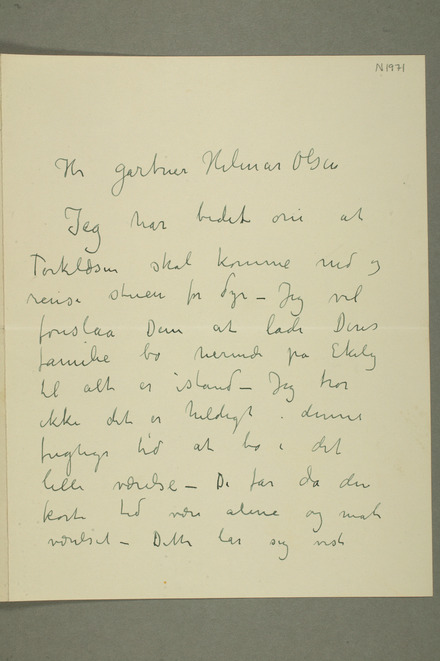 N 1971
Hr gartner Hilmar Olsen
Jeg har bedet om at
skal komme ned og
rense stuen for dyr – Jeg vil
foreslaa Dem at lade Deres
familie bo nermde paa Ekely
til alt er istand – Jeg tror
ikke det er heldigt i denne
fugtige tid at bo i det
lille værelse – De får da den
korte tid være alene og male
værelset – Dette lar sig vist